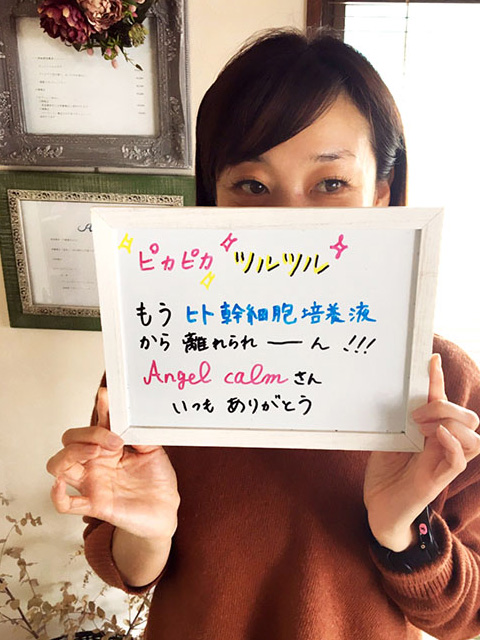 ピカピカ ツルツル
もう ヒト幹細胞培養液
から 離れられーん!!!
Angel calmさん
いつも ありがとう